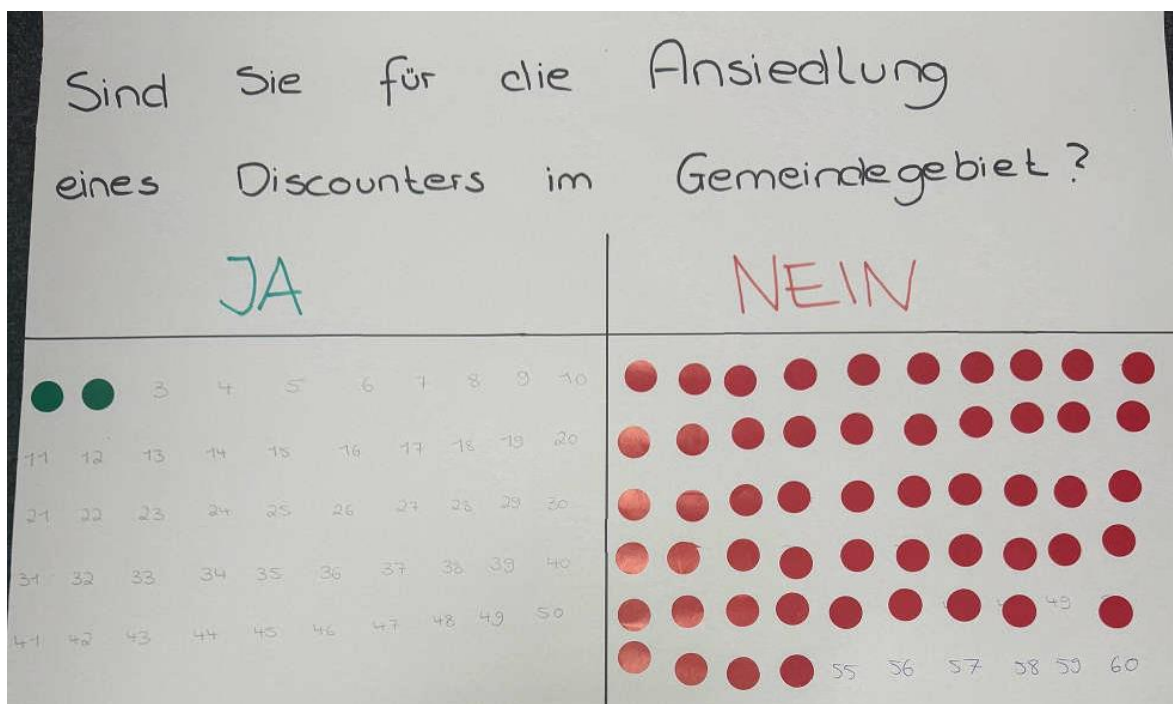 Sind Sie für die Ansiedlung
eines Discounters im Gemeindegebiet?
JA NEIN
3 4 5 6 7 8 9 10
11 12 13 14 15 16 17 18 19 20
21 22 23 24 25 26 27 28 29 30
31 32 33 34 35 36 37 38 39 40
41 42 43 44 45 46 47 48 49 50 49
55 56 57 58 59 60